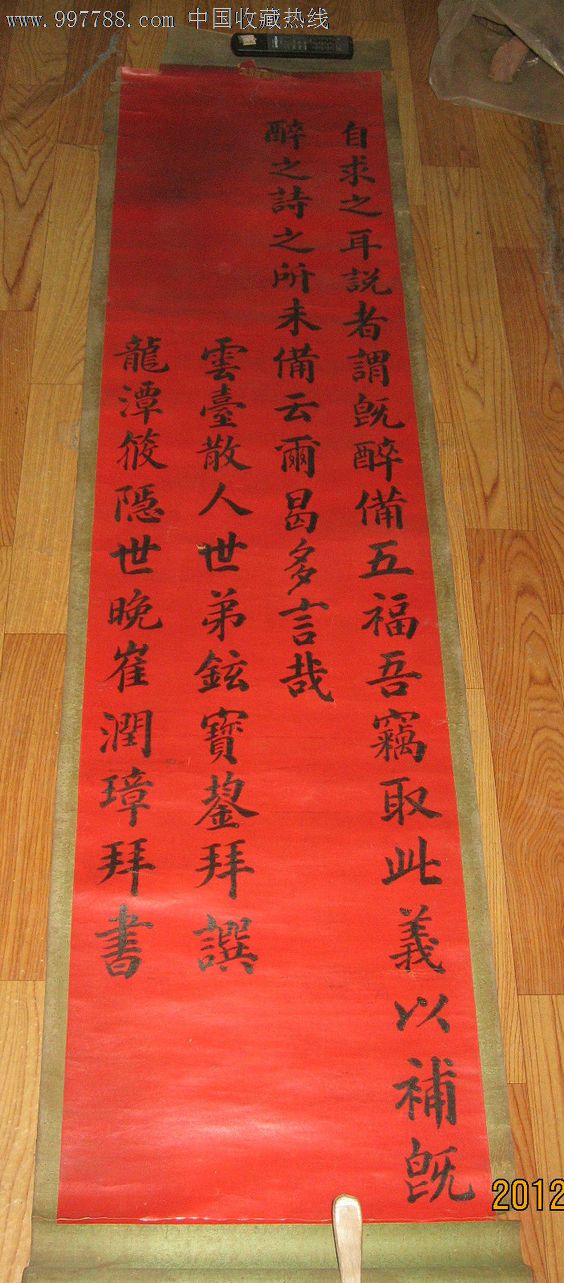 www.997788.com 中国收藏热线
自求之耳説者謂既醉備五福吾竊取此義以補既
醉之詩之所未備云爾曷多言哉
雲臺散人世弟鉉寶鋆拜譔
龍潭筱隱世晚崔潤璋拜書
2012